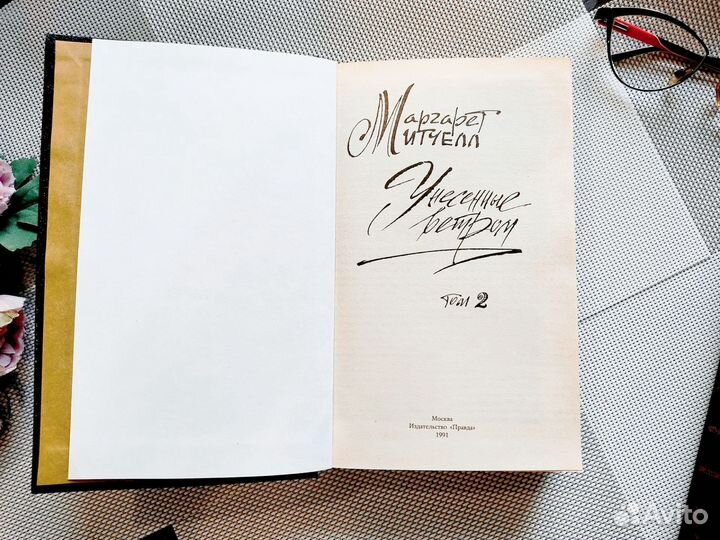 Маргарет
Митчелл
Унесенные
ветром
том 2
Москва
Издательство «Правда»
1991
Avito